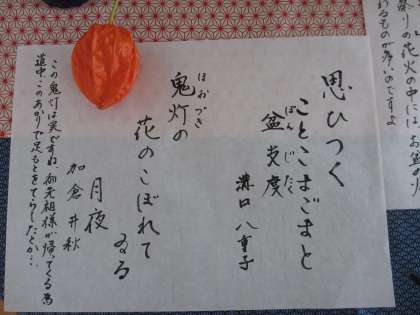 思ひつく
ことこまごまと
盆支度
ぼんじたく
溝口八重子
鬼灯の
ほおづき
花のこぼれて
ゐる
月夜
加倉井秋
この鬼灯は実ですね御先祖様が帰ってくる為
道中、このあかりで足もとをてらしたとか…
祭りの花火の中には、お盆の
ものが多いのですよ